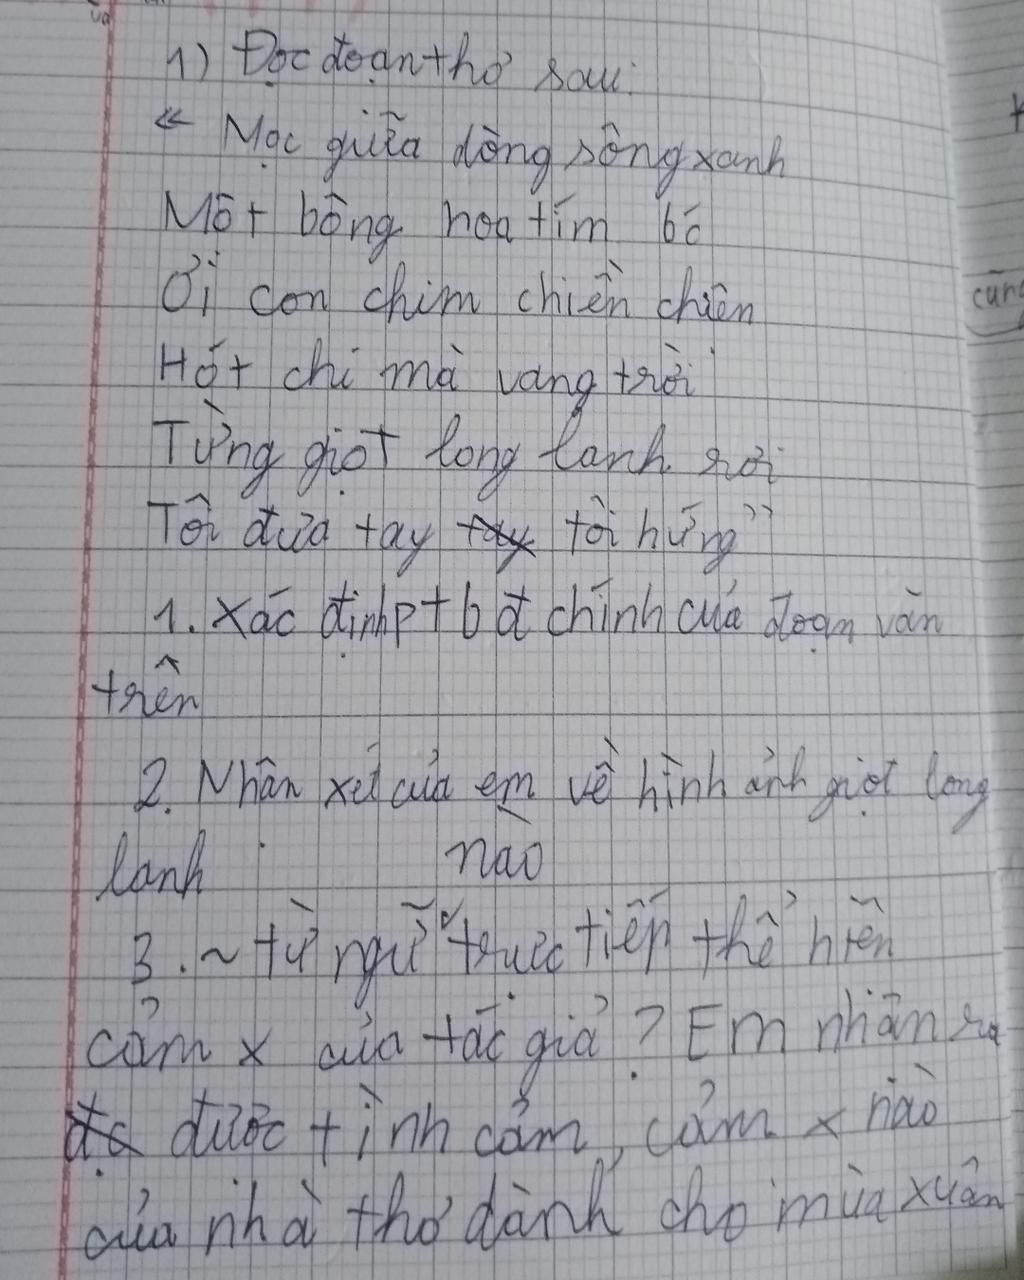 1) Đọc đoạn thơ sau:
“ Mọc giữa dòng sông xanh
Một bông hoa tím bc
Ơi con chim chiền chiện
Hót chi mà vang trời
Từng giọt long lanh rơi
Tôi đưa tay tay tôi hứng”
1. Xác định ptbđ chính của đoạn văn
trên
2. Nhận xét của em về hình ảnh giọt long
lanh
nào
3. ~ từ ngữ trực tiếp thể hiện
cảm x của tác giả? Em nhận ra
đc được tình cảm, cảm x nào
của nhà thơ dành cho mùa xuân
cũng